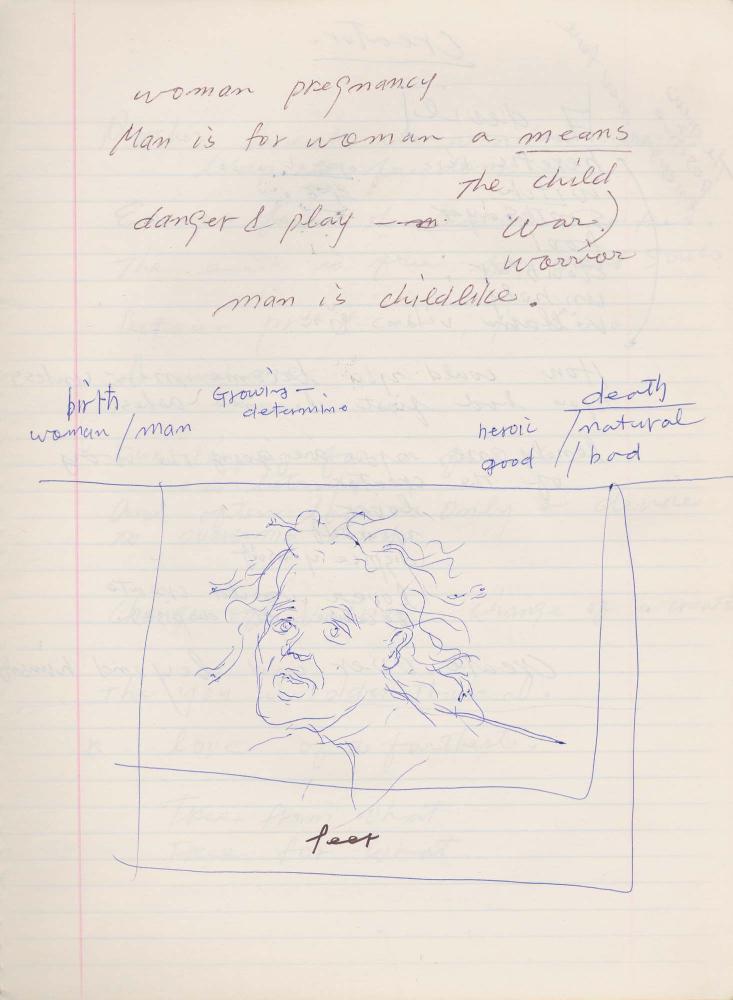 woman pregnancy
Man is for woman a means
The child
danger & play — war)
warrior
man is childlike.
birth
woman / man
Growing —
determine
death
heroic / natural
good // bad